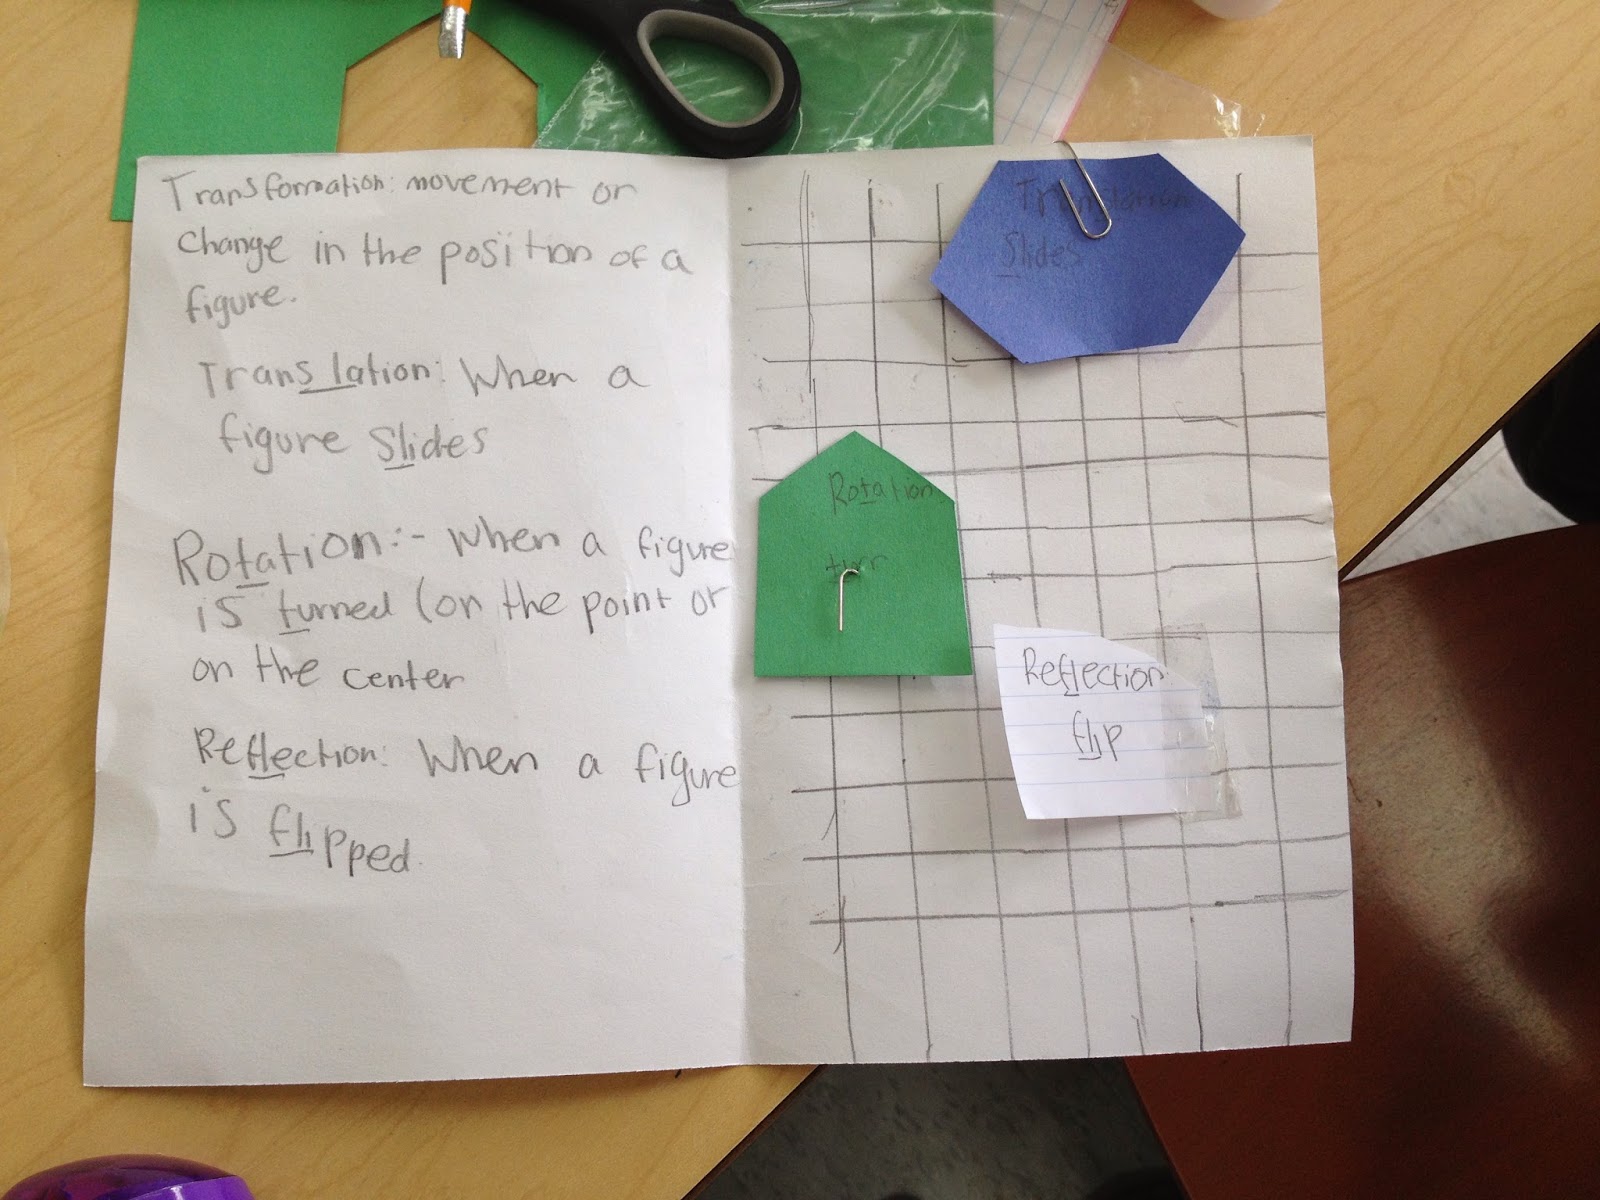 Transformation: movement or
Change in the position of a
figure.
Translation: When a
figure Slides
Rotation:- When a figure
is turned (on the point or
on the center
Reflection: When a figure
is flipped.
Translation
Slides
Rotation
turn
Reflection
flip